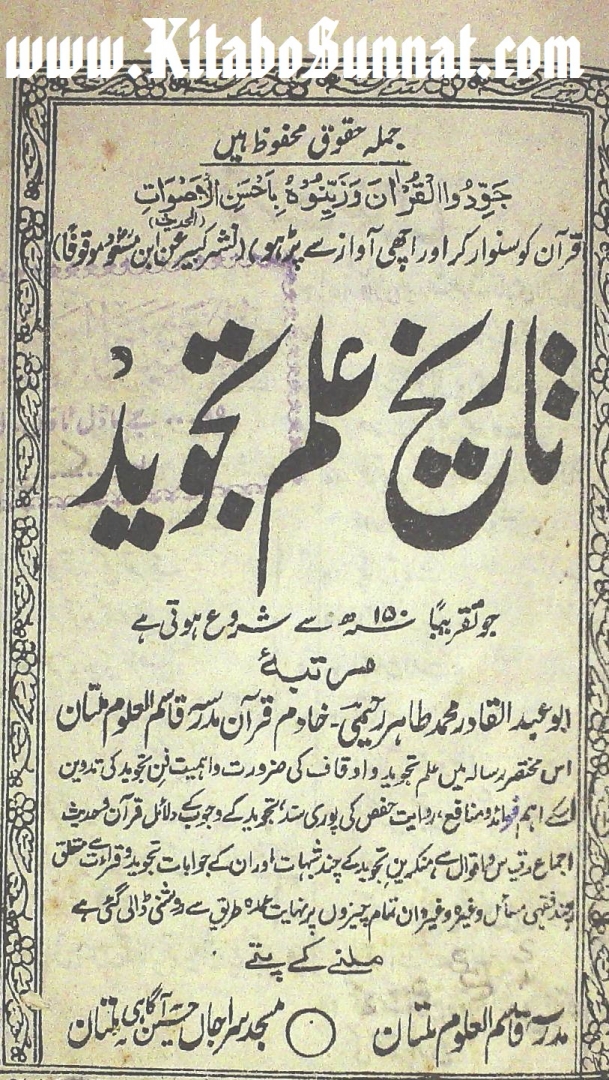 www.KitaboSunnat.com
جملہ حقوق محفوظ ہیں
جَوِّدُوا الْقُرْاٰنَ وَزَيِّنُوْهُ بِاَحْسَنِ الْاَصْوَاتِ
(الحدیث)
قرآن کو سنوار کر اور اچھی آواز سے پڑھو) (نشر کبیر عن ابن مسعودؓ موقوفًا)
تاریخ علم تجوید
جو تقریبًا ۱۵۰ھ سے شروع ہوتی ہے
مرتبۂ
ابو عبد القادر محمد طاہر رحیمی۔ خادم قرآن مدرسہ قاسم العلوم ملتان
اس مختصر رسالہ میں علم تجوید و اوقاف کی ضرورت و اہمیت فن تجوید کی تدوین
اسکے اہم فوائد و منافع، روایت حفص کی پوری سند، تجوید کے وجوب کے دلائل قرآن و حدیث
اجماع و قیاس و اقوال سے منکرین تجوید کے چند شبہات اور ان کے جوابات تجوید و قراءت سے متعلق
چند فقہی مسائل وغیرہ وغیرہ ان تمام چیزوں پر نہایت عمدہ طریق سے روشنی ڈالی گئی ہے
ملنے کے پتے
مدرسہ قاسم العلوم ملتان ○ مسجد سراجاں حسین آگاہی ملتان